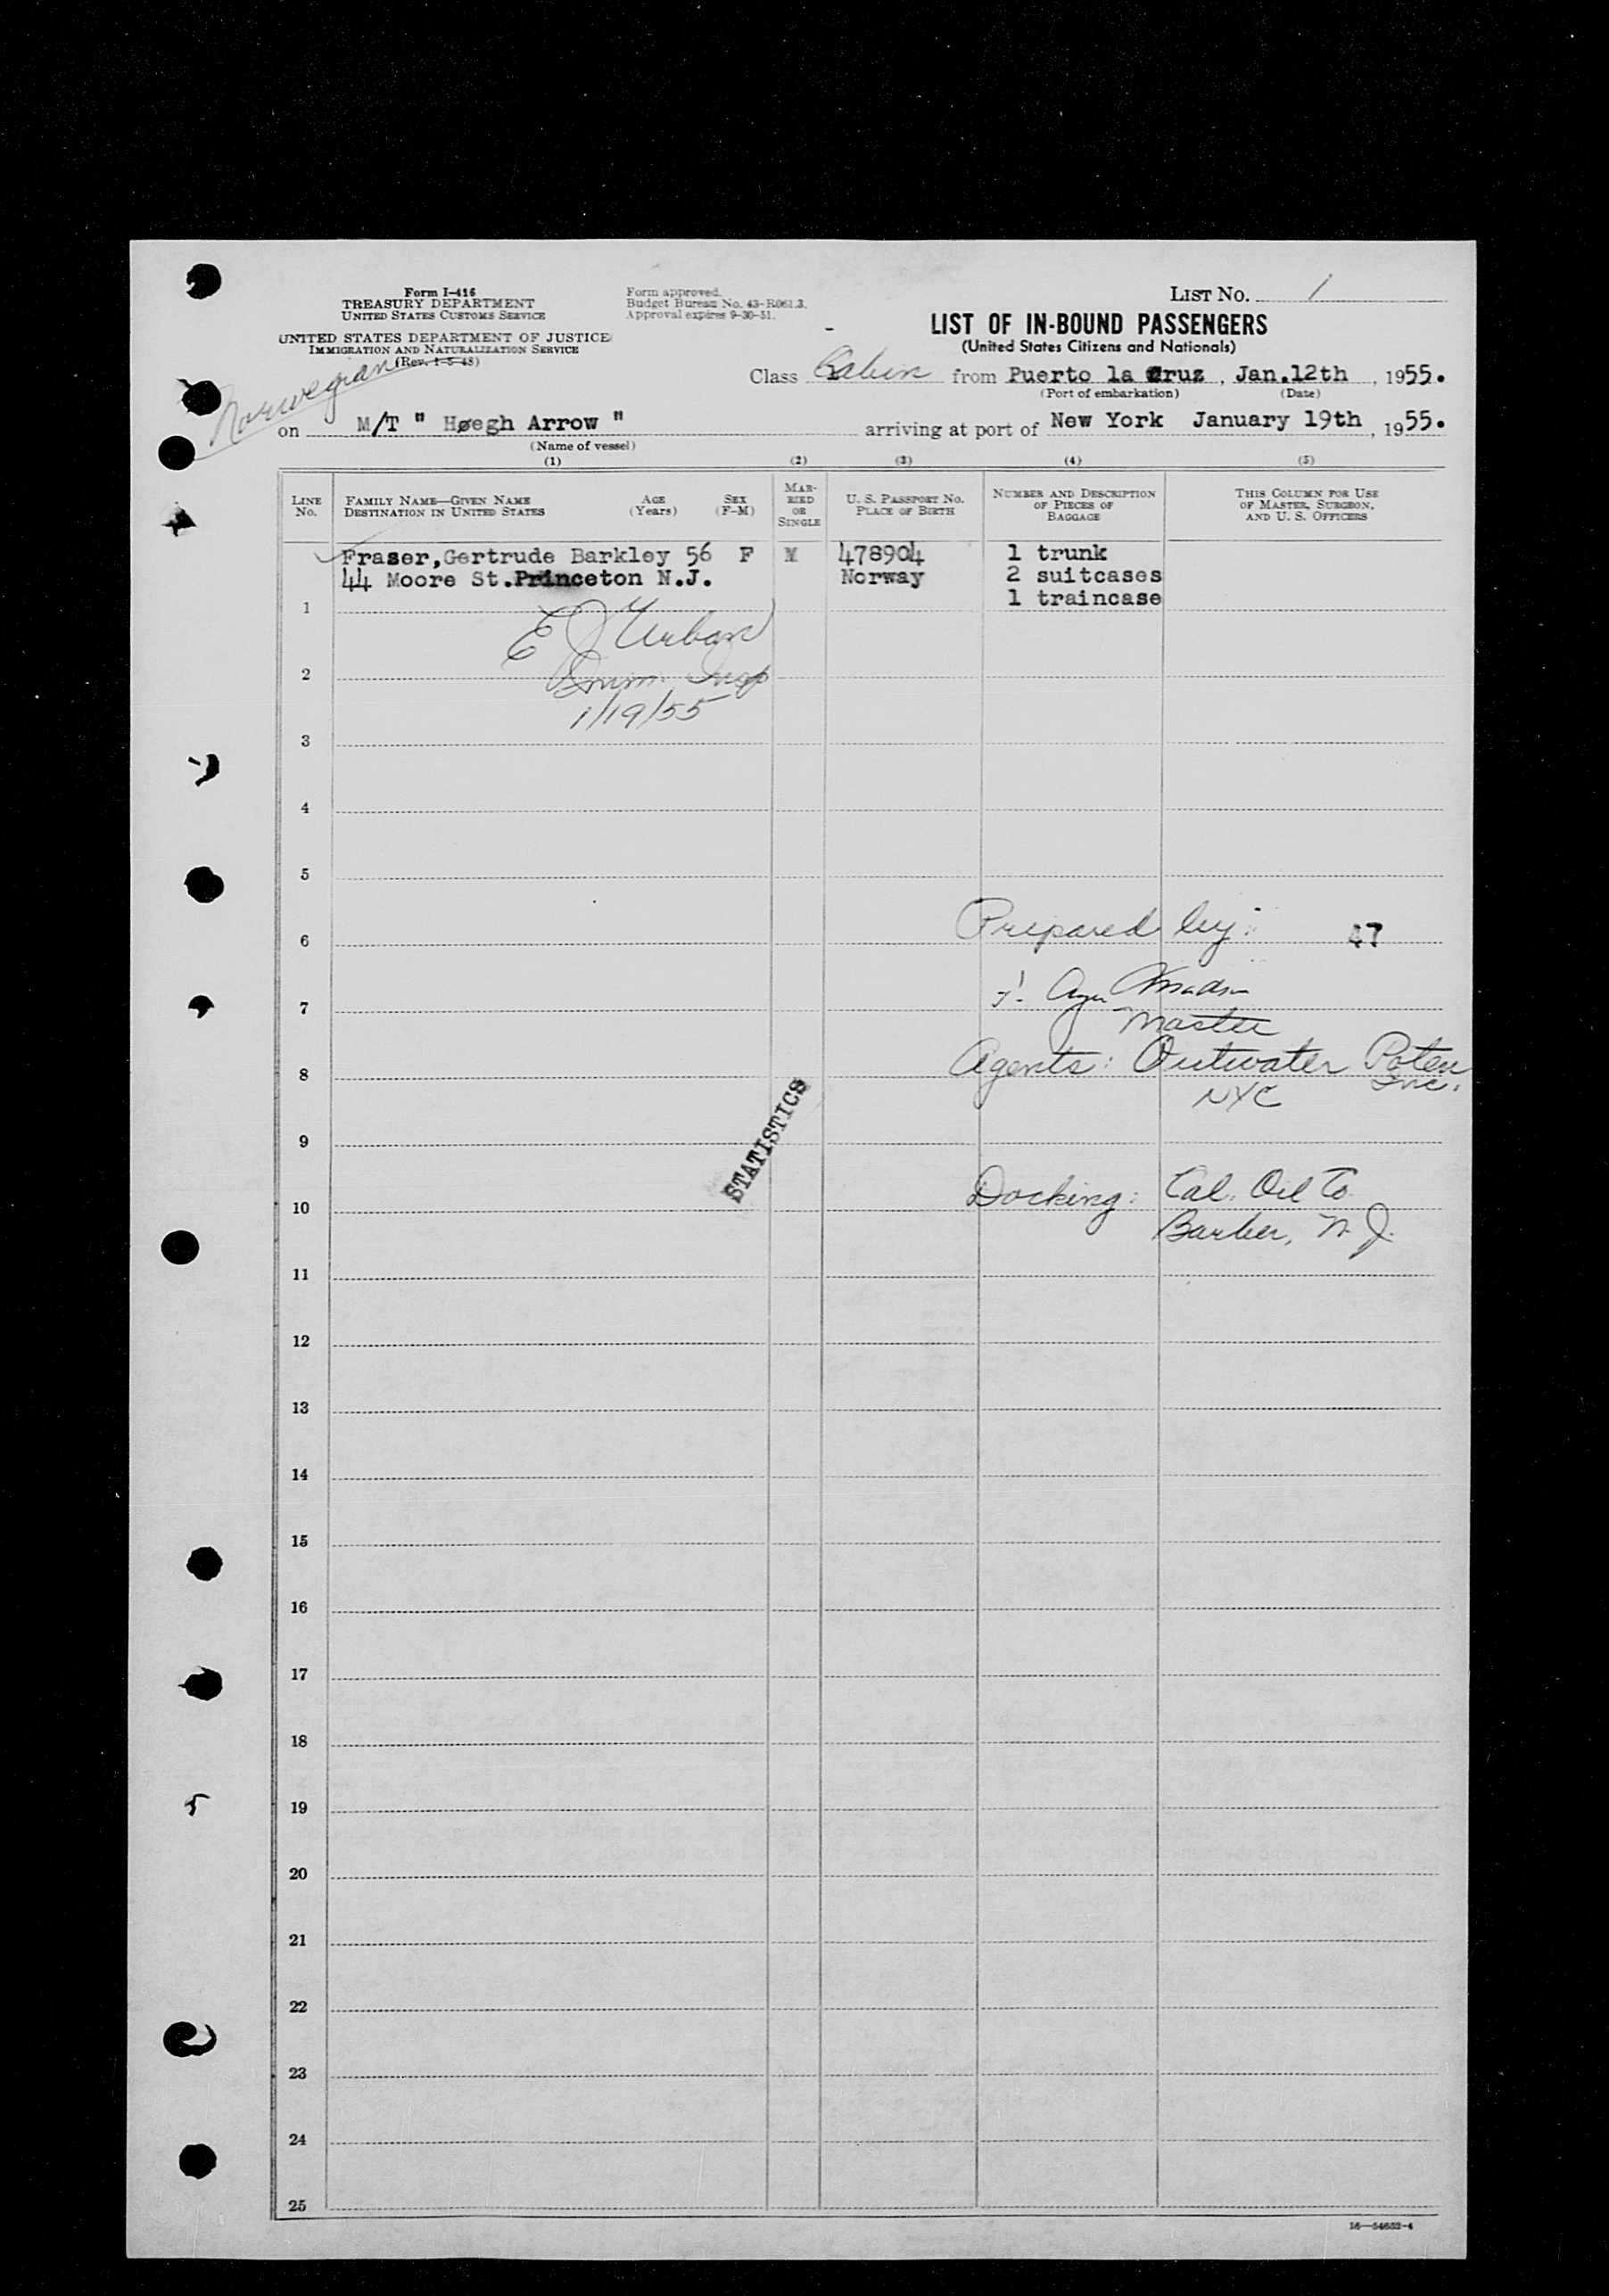 Form I-416
TREASURY DEPARTMENT
UNITED STATES CUSTOMS SERVICE
UNITED STATES DEPARTMENT OF JUSTICE
IMMIGRATION AND NATURALIZATION SERVICE
(Rev. 1-5-48)
Form approved.
Budget Bureau No. 43-R061.3.
Approval expires 9-30-51.
LIST NO. 1
LIST OF IN-BOUND PASSENGERS
(United States Citizens and Nationals)
Norwegian
Class Cabin from Puerto la Cruz, Jan.12th, 1955.
(Port of embarkation) (Date)
on M/T " Høegh Arrow " arriving at port of New York January 19th, 1955.
(Name of vessel)
(1) (2) (3) (4) (5)
LINE NO.
FAMILY NAME—GIVEN NAME
DESTINATION IN UNITED STATES
AGE (Years)
SEX (F-M)
MARRIED OR SINGLE
U. S. PASSPORT NO.
PLACE OF BIRTH
NUMBER AND DESCRIPTION OF PIECES OF BAGGAGE
THIS COLUMN FOR USE OF MASTER, SURGEON, AND U. S. OFFICERS
Fraser,Gertrude Barkley 56 F M 478904 1 trunk
44 Moore St.Princeton N.J. Norway 2 suitcases
1 traincase
1
E J Urban
2
Imm. Insp
1/19/55
3
4
5
Prepared by:
6 47
7
Master
Agents: Outwater Poten Inc.
8
NYC
STATISTICS
9
Docking: Cal. Oil Co
10
Barber, N.J.
11
12
13
14
15
16
17
18
19
20
21
22
23
24
25
16—54652-4